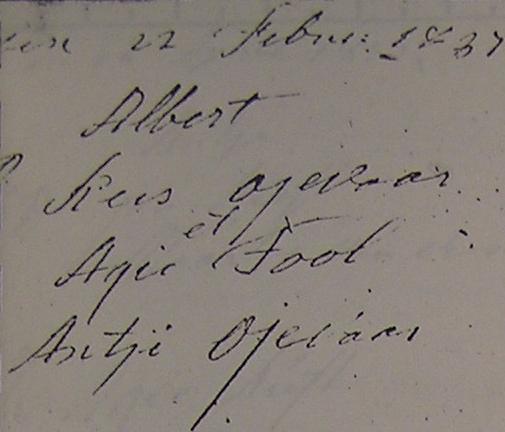 22 Febru: 1737
Albert
Kees Ojevaar
et
Agie Fool
Antji Ojevaar